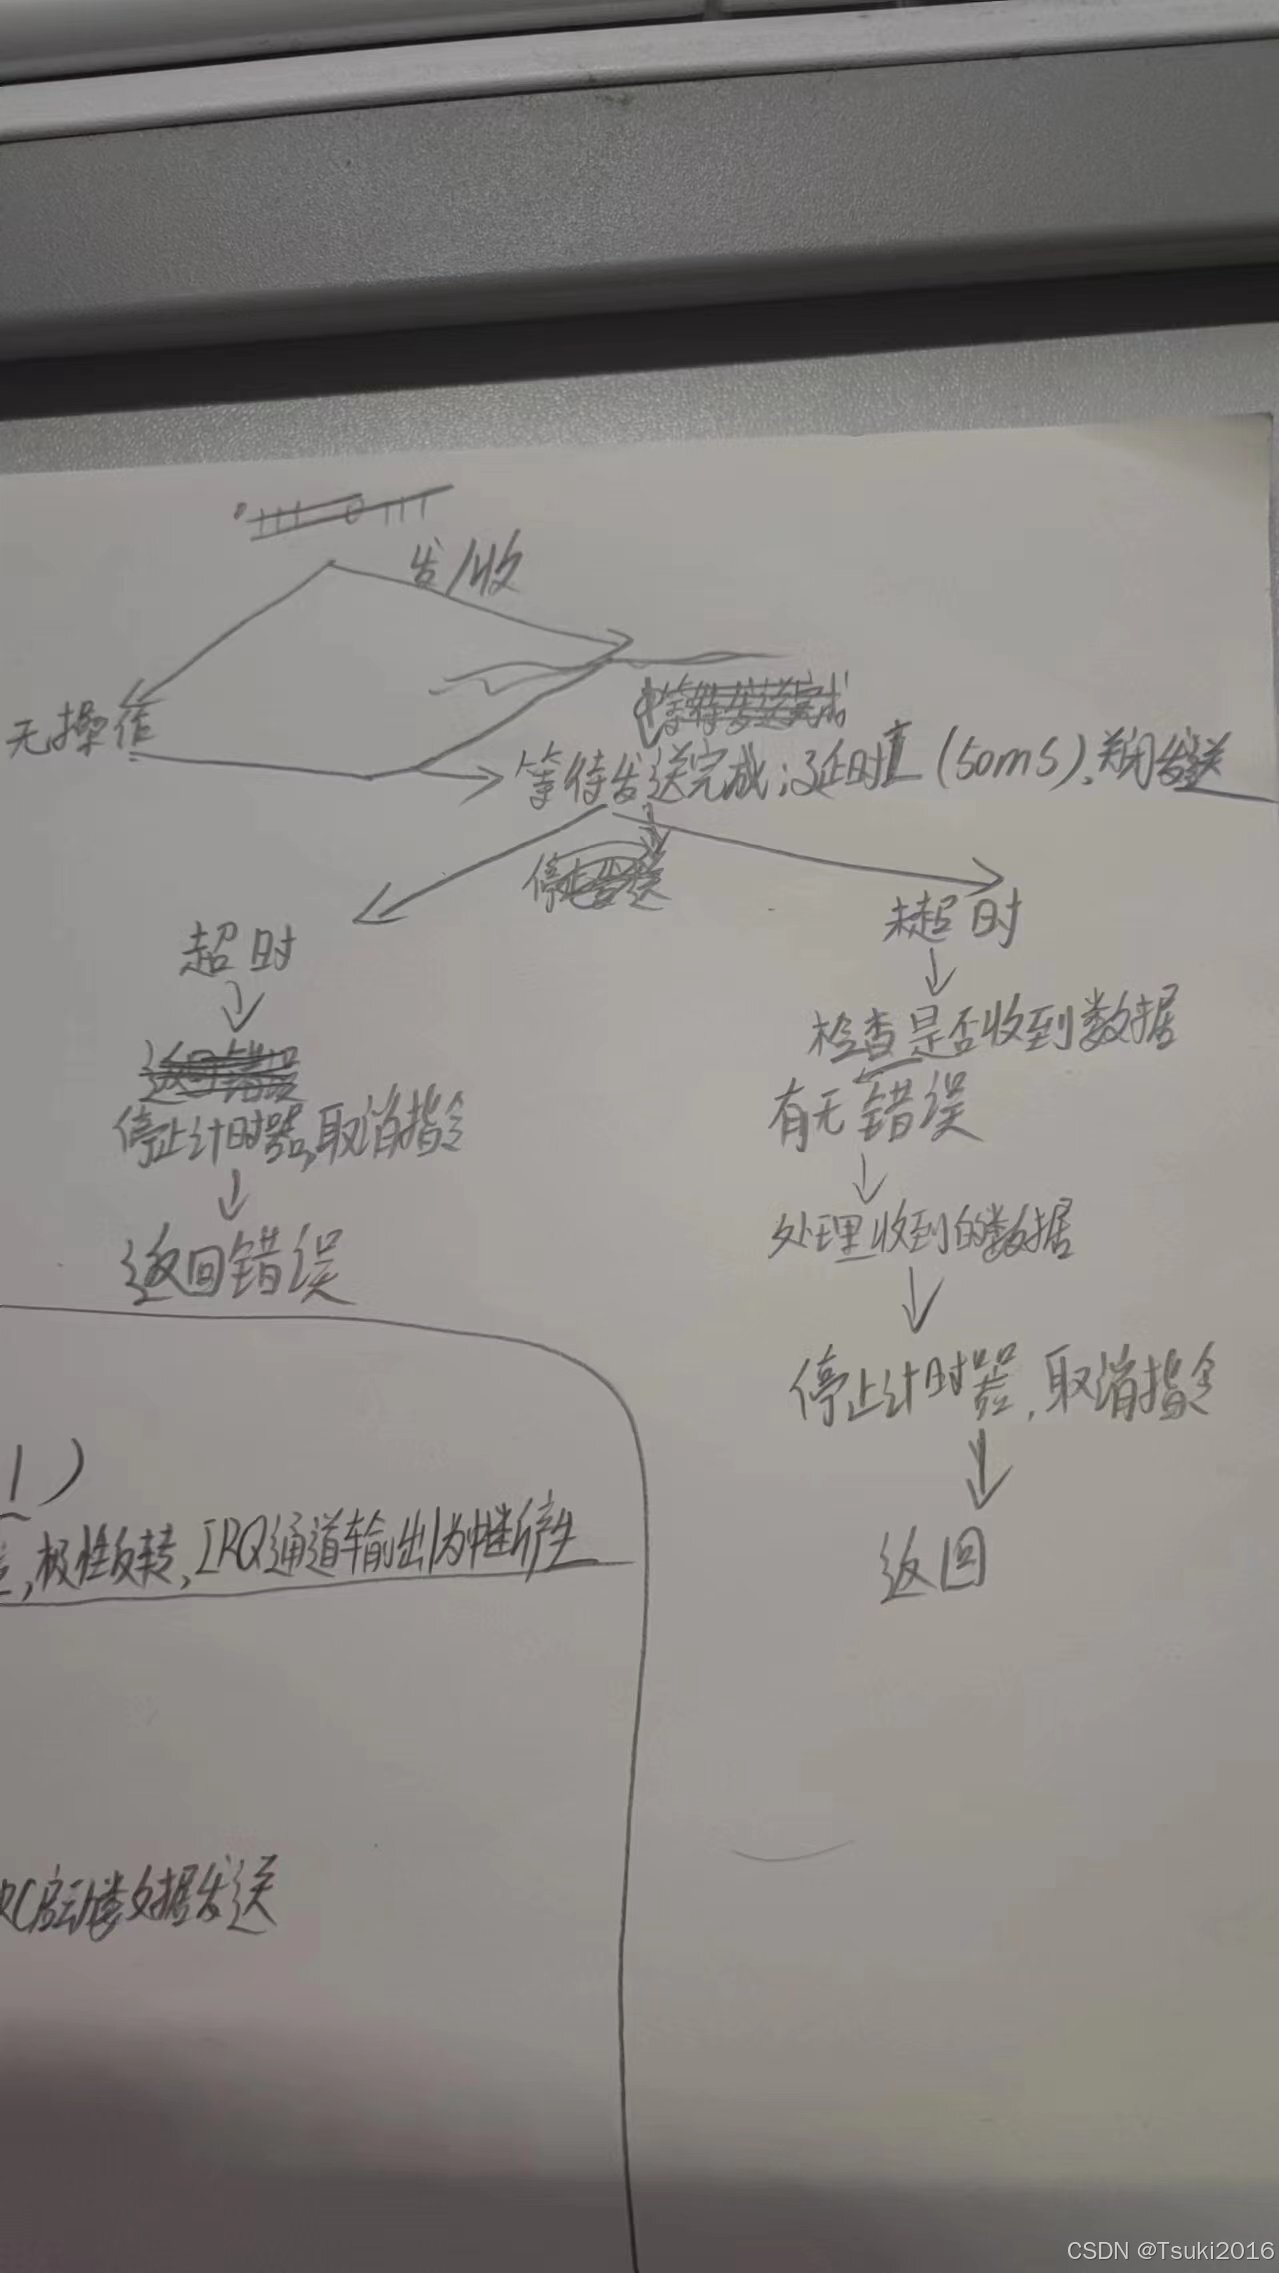 发/收
无操作
等待发送完成;延时直(50ms),关闭发送
超时
未超时
检查是否收到数据
有无错误
停止计时器,取消指令
处理收到的数据
返回错误
停止计时器,取消指令
1)
,极性反转,IRQ通道输出为中断产生
返回
启动数据发送
CSDN @Tsuki2016